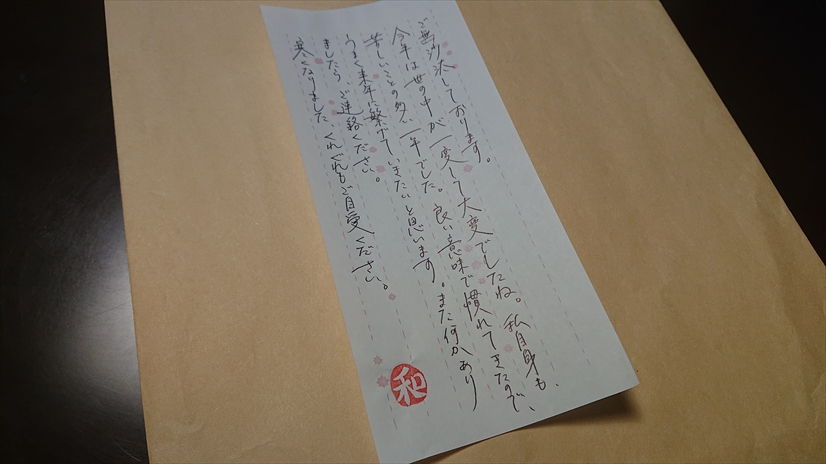 ご無沙汰しております。
今年は世の中が一変して大変でしたね。私自身も、
苦しいことの多い一年でした。良い意味で慣れてきたので、
うまく来年に繋げていきたいと思います。また何かあり
ましたら、ご連絡ください。
寒くなりました、くれぐれもご自愛ください。
和